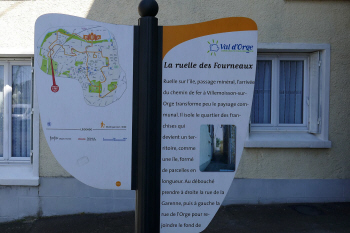 Val d'Orge
La ruelle des Fourneaux
Ruelle sur l'île, passage mineral, l'arrivée
du chemin de fer à Villemoisson-sur-
Orge transforme peu le paysage com-
munal. Il isole le quartier des four-
chises qui
devient un ter-
ritoire, comme
une île, formé
de parcelles en
longueur. Au débouché
prendre à droite la rue de la
Garenne, puis à gauche la
rue de l'Orge pour re-
joindre le fond de